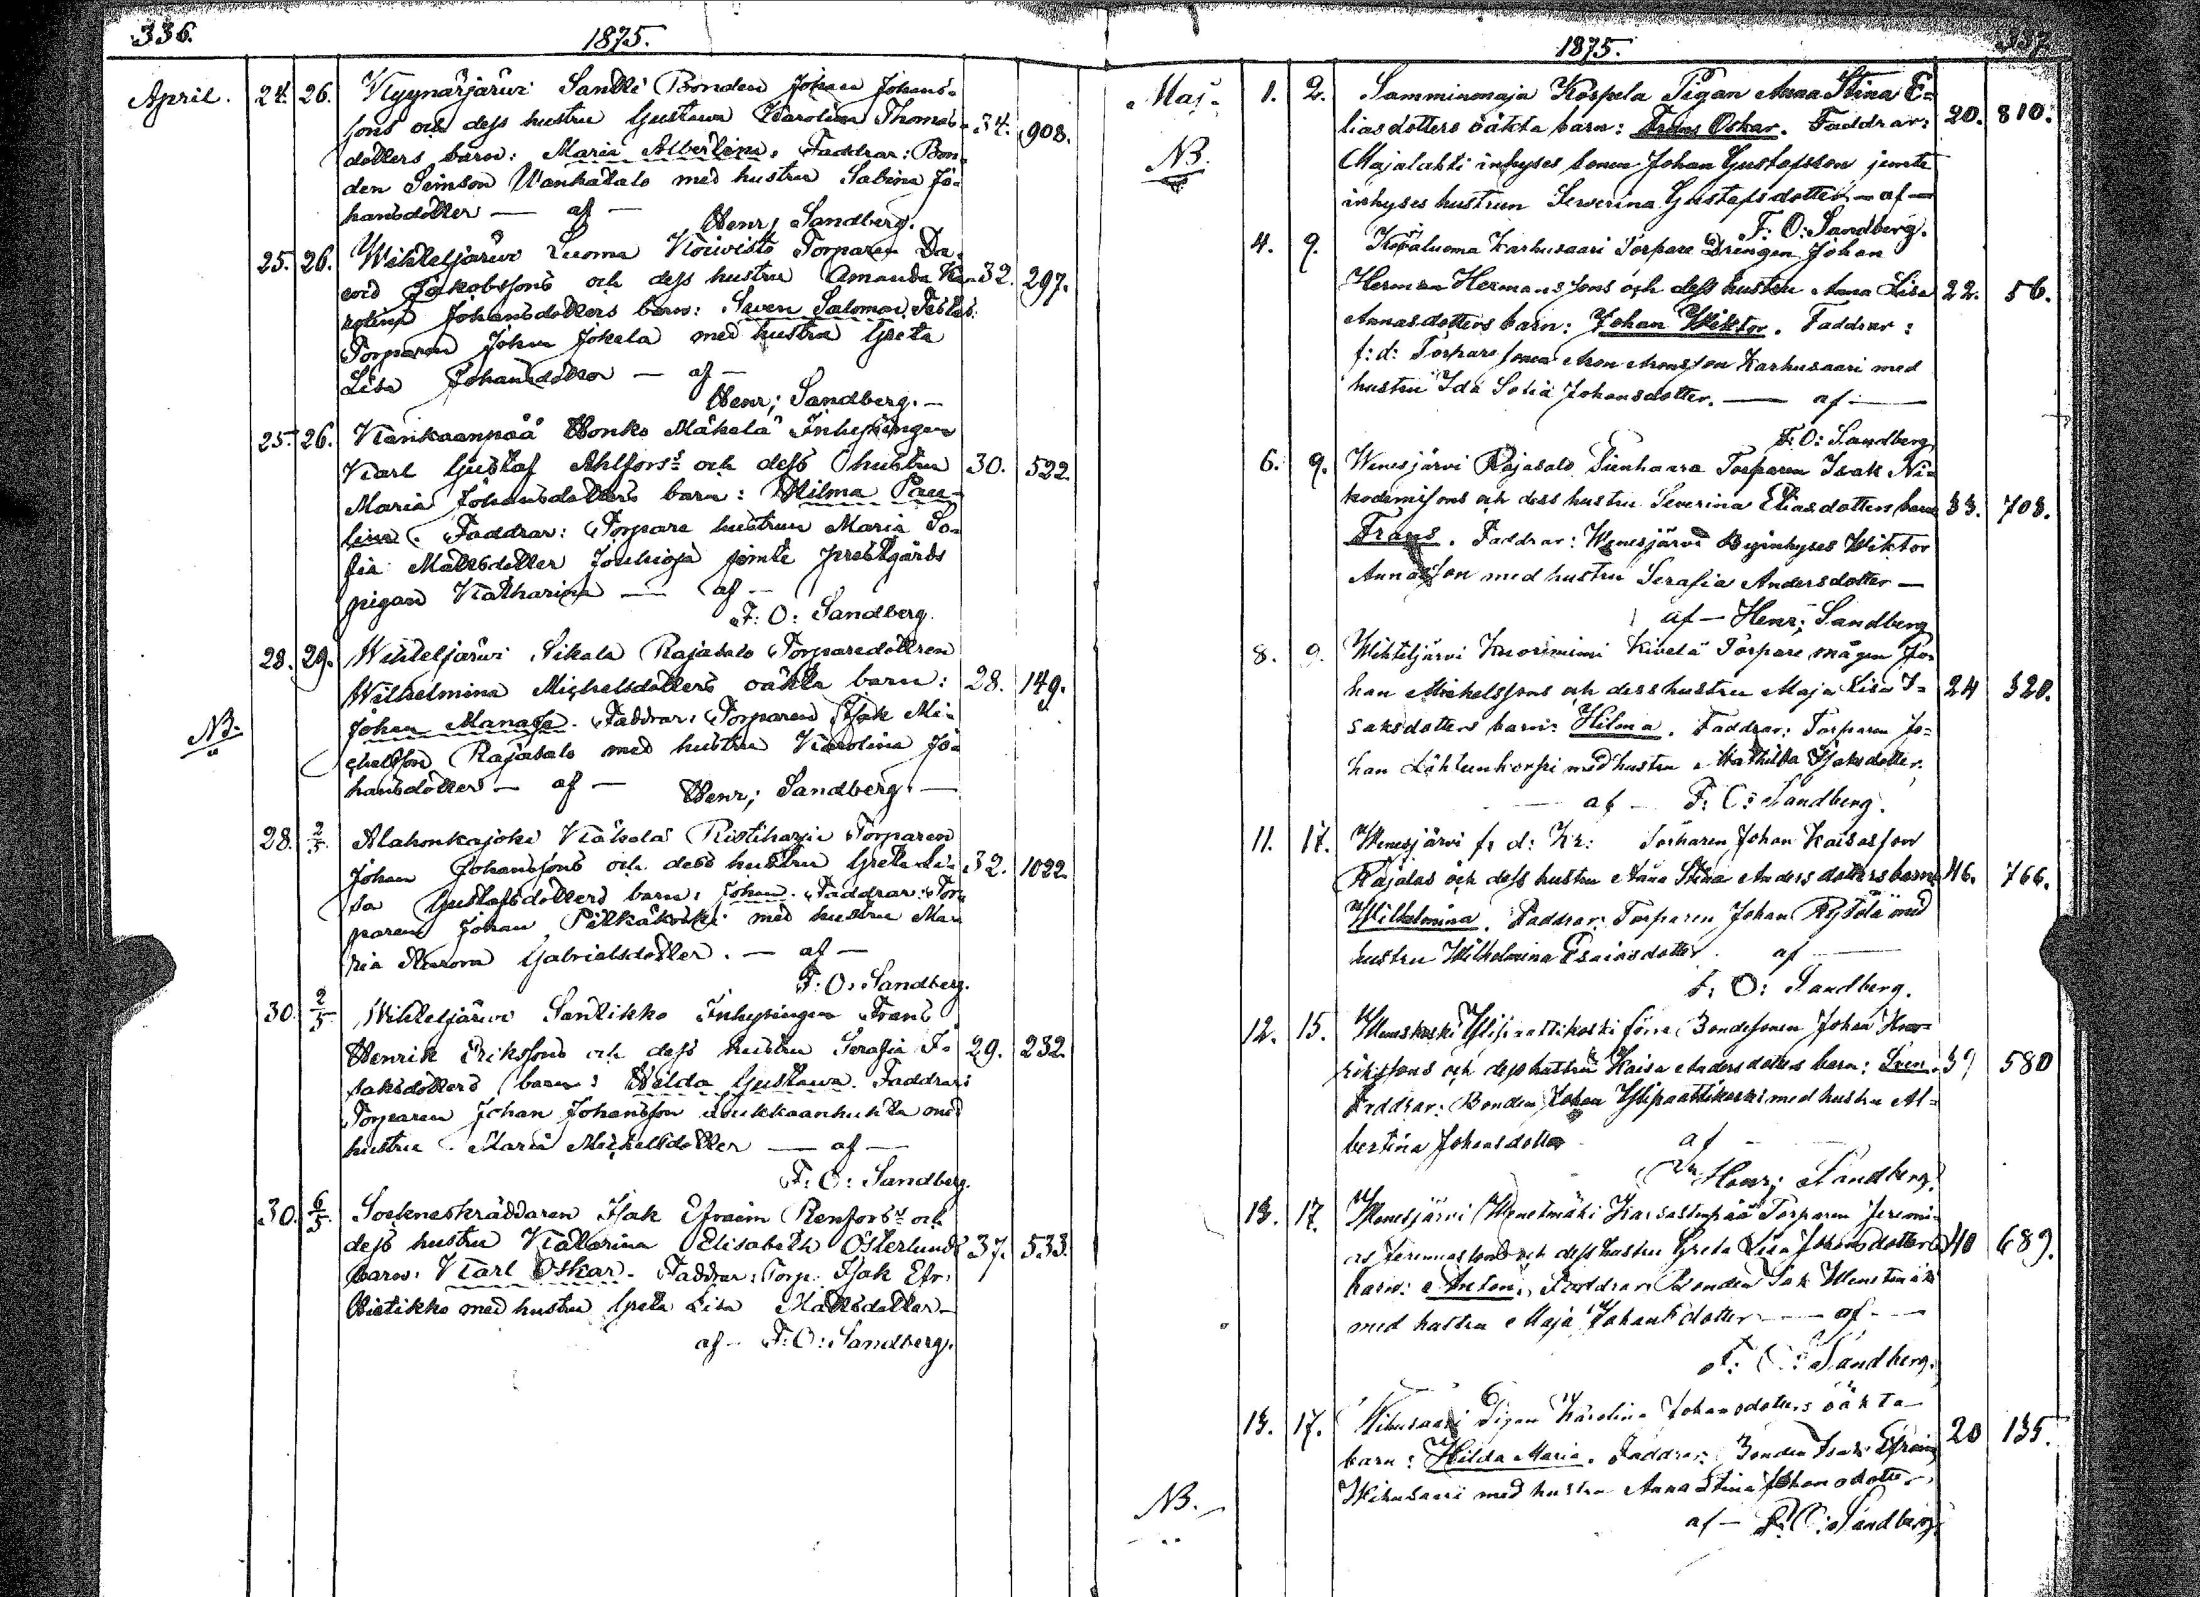 336.
1875.
April. 24. 26. Kyynärjärwi Sandti Bonden Johan Johans-
sons och dess hustru Gustawa Karolina Thomas- 34. 908.
dotters barn: Maria Albertina. Faddrar: Bon-
den Simson Wankasalo med hustru Sabina Jo-
hansdotter — af —
Henr; Sandberg.
25. 26. Wihteljärwi Luoma Koiwisto Torparen Da-
vid Jakobssons och dess hustru Amanda Ka- 32. 297.
rolina Johansdotters barn: Swen Salomon. Faddr:
Torparen Johan Jokela med hustru Greta
Lisa Johansdotter — af —
Henr; Sandberg. —
25. 26. Kankaanpää Honko Mäkelä Inhysingen
Karl Gustaf Ahlfors:s och dess hustru 30. 522.
Maria Johansdotters barn: Hilma Pau-
lina. Faddrar: Torpare hustrun Maria So-
fia Mattsdotter Jouhioja jemte prestgårds
pigan Katharina — af —
F: O: Sandberg.
28. 29. Wihteljärwi Sikala Rajasalo Torparedottren
Wilhelmina Michelsdotters oäkta barn: 28. 149.
NB. Johan Manasse. Faddrar: Torparen Isak Mi-
chelsson Rajasalo med hustru Karolina Jo-
hansdotter — af — Henr; Sandberg. —
28. 2/5. Alahonkajoki Käkelä Ristiharju Torparen
Johan Johanssons och dess hustru Greta Li- 32. 1022.
sa Gustafsdotters barn: Johan. Faddrar: Tor-
paren Johan Pitkäkoski med hustru Ma-
ria Aurora Gabrielsdotter. — af —
F: O: Sandberg.
30. 2/5 Wihteljärwi Santikko Inhysingen Frans
Henrik Erikssons och dess hustru Serafia I- 29. 232.
saksdotters barn: Hilda Gustawa. Faddrar:
Torparen Johan Johansson med
hustru Maria Michelsdotter — af —
F: O: Sandberg.
30. 6/5. Sockneskräddaren Isak Efraim Renfors:s och
dess hustru Katarina Elisabeth Österlunds 37. 533.
barn: Karl Oskar. Faddrar: Torp. Isak Efr:
med hustru Greta Lisa Mattsdotter —
af — F: O: Sandberg.
337
1875.
Maj. 1. 2. Samminmaja Kospela Pigan Anna Stina E-
liasdotters oäkta barn: Frans Oskar. Faddrar: 20. 810.
NB. Majalahti inhyses sonen Johan Gustafsson jemte
inhyses hustrun Sewerina Gustafsdotter — af —
F: O: Sandberg.
4. 9. Karhusaari Torpare Drengen Johan
Herman Hermanssons och dess hustru Anna Lisa 22. 56.
Annasdotters barn: Johan Wiktor. Faddrar:
f: d: Torpare sonen Aron Aronsson Karhusaari med
hustru Ida Sofia Johansdotter. — af —
F: O: Sandberg
6. 9. Wenesjärvi Rajasalo Tienhaara Torparen Isak Ni-
kodemissons och dess hustru Severina Eliasdotters barn 33. 708.
Frans. Faddrar: Wenesjärvi Byinhyses Wiktor
Annasson med hustru Serafia Andersdotter —
af — Henr; Sandberg
8. 9. Wihteljärvi Kuoriniemi Kivelä Torpare mågen Jo-
han Michelssons och dess hustru Maja Lisa I- 24 320.
saksdotters barn: Hilma. Faddrar: Torparen Jo-
han Lähteenkorpi med hustru Mathilda Isaksdotter.
— af — F: O: Sandberg.
11. 17. Wenesjärvi f: d: Kr: Torparen Johan Kaisasson
Rajalas och dess hustru Anna Stina Andersdotters barn 46. 766.
Wilhelmina. Faddrar: Torparen Johan med
hustru Wilhelmina Esaiasdotter. af —
F: O: Sandberg.
12. 15. Bondesonen Johan Hen-
rikssons och dess hustru Kaisa Andersdotters barn: Sven. 39 580
Faddrar: Bonden Johan Ylipaattikoski med hustru Al-
bertina Johansdotter af —
Henr; Sandberg.
13. 17. Wenesjärvi Wenetmäki Torparen Jeremi-
as Jeremiassons och dess hustru Greta Lisa Johansdotters 40 689.
barn: Anton. Faddrar: Bonden Isak Wenetmäki
med hustru Maja Johansdotter — af —
F: O: Sandberg.
13. 17. Wihusaari Pigan Karolina Johansdotters oäkta
barn: Hilda Maria. Faddrar: Bonden Isak Efraim 20 135.
Wihusaari med hustru Anna Stina Johansdotter.
NB. — af — F: O: Sandberg.